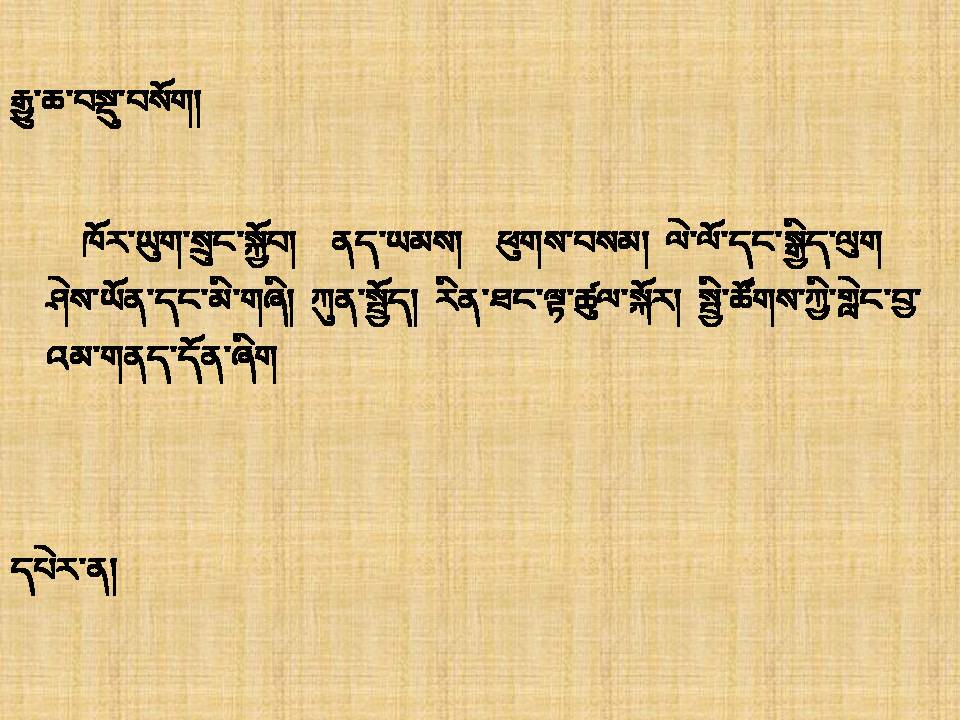 རྒྱུ་ཆ་བསྡུ་བསོག།
ཁོར་ཡུག་སྲུང་སྐྱོབ། ནད་ཡམས། ཕུགས་བསམ། ལེ་ལོ་དང་སྒྱིད་ལུག
ཤེས་ཡོན་དང་མི་གཞི། ཀུན་སྤྱོད། རིན་ཐང་ལྟ་ཚུལ་སྐོར། སྤྱི་ཚོགས་ཀྱི་གླེང་བྱ་
འམ་གནད་དོན་ཞིག
དཔེར་ན།